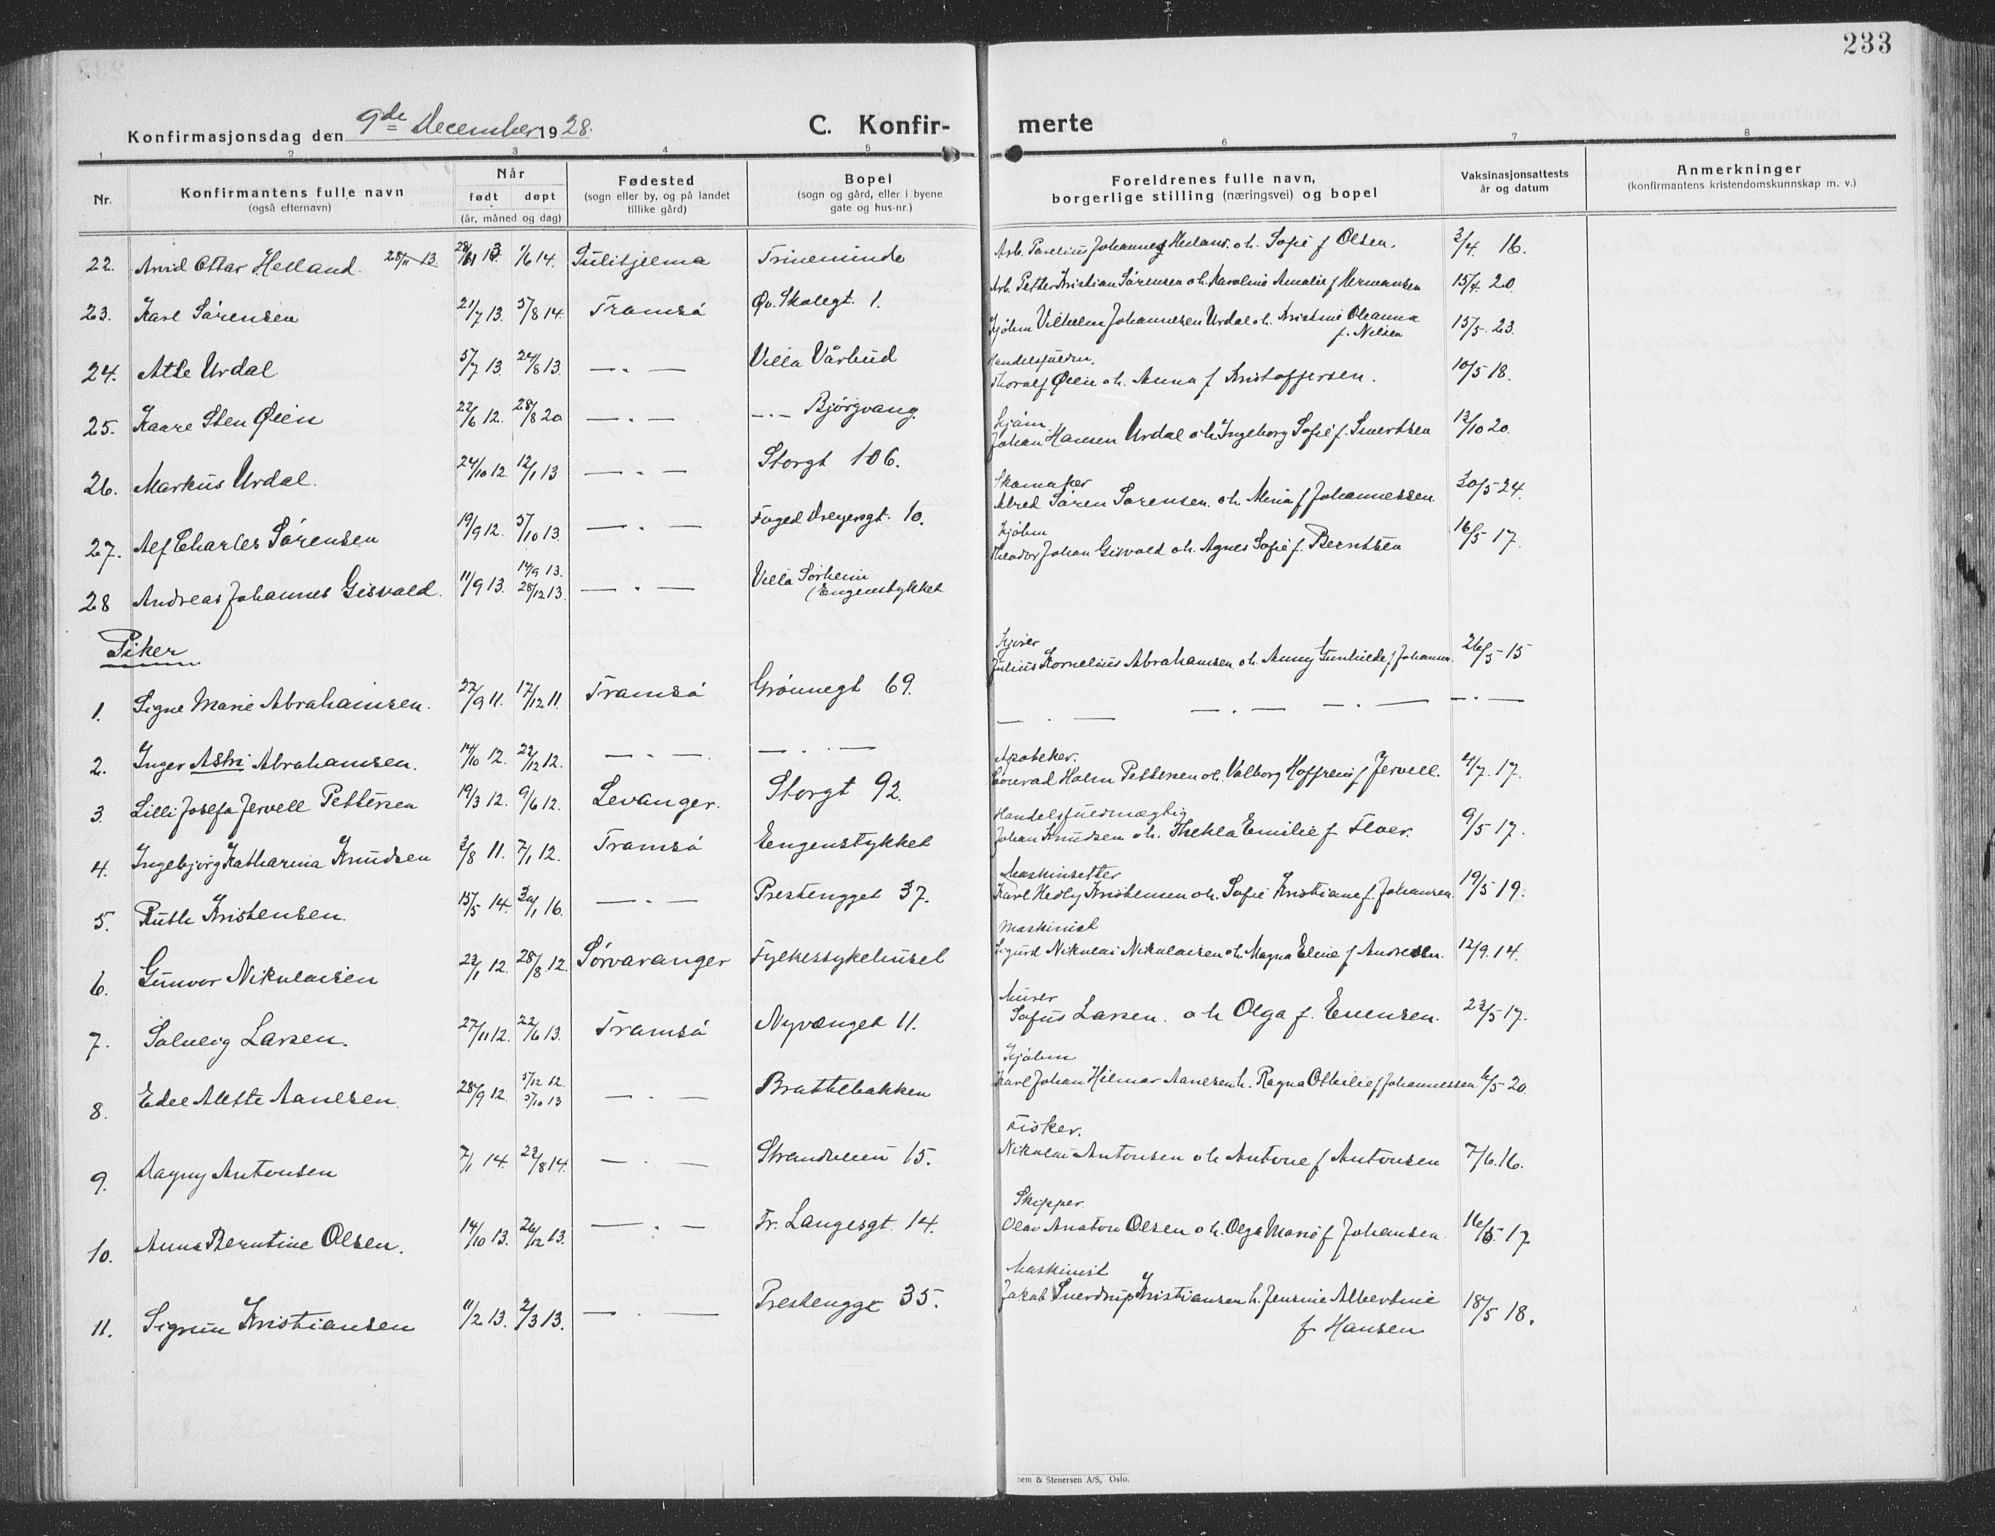 233
Konfirmasjonsdag den 9de December 1928.
C. Konfir- merte
1 2 3 4 5 6 7 8
Nr.
Konfirmantens fulle navn
(også efternavn)
Når
født døpt
(år, måned og dag)
Fødested
(sogn eller by, og på landet
tillike gård)
Bopel
(sogn og gård, eller i byene
gate og hus-nr.)
Foreldrenes fulle navn,
borgerlige stilling (næringsvei) og bopel
Vaksinasjonsattests
år og datum
Anmerkninger
(konfirmantens kristendomskunnskap m. v.)
22. Arvid Ottar Helland. 28/11 13 28/11 13 1/6 14. Sulitjelma Trineminde Arb. Parelius Johannes Helland o. h. Sofie f Olsen. 3/4. 16.
23. Karl Sørensen 21/7 13. 5/8 14. Tromsø Øv. Skolegt. 1. Arb. Petter Kristian Sørensen o h. Karoline Amalie f Hermansen 15/4. 20
24. Atle Urdal 5/7 13. 24/8 13. — . — Villa Vårbud Kjøbm Vilhelm Johannesen Urdal o. h. Kristine Oleanna f. Nilsen 15/5. 23.
25. Kaare Sten Øien 22/6 12. 28/8 20 — . — — . — Bjørgvang. Handelsfuldm. Thoralf Øien o h. Anna f Kristoffersen. 10/5 18.
26. Markus Urdal. 24/10 12. 12/1 13 — . — Storgt 106. Kjøbm. Johan Hansen Urdal o h Ingeborg Sofie f. Sivertsen 13/10 20.
27. Alf Charles Sørensen 19/9 12. 5/10 13. — . — Foged Dreyersgt. 10. Skomaker Alfred Søren Sørensen. o h. Mina f Johannessen. 30/5 24.
28 Andreas Johannes Gisvold. 11/9 13. 14/9 13. 28/12 13. — . — Villa Sørheim (Engenstykket Kjøbm Theodor Johan Gisvold o h. Agnes Sofie f. Berntsen 16/5 17.
Piker
1. Signe Marie Abrahamsen. 27/9 11. 17/12 11. Tromsø Grønnegt 69. Julius Kornelius Abrahamsen o h. Anny Gunhilde f Johansen. 26/5 15
2. Inger Astri Abrahamsen. 14/10 12. 22/12 12. — . — — . — — . — — . — — . — — . —
3. Lilli Josefa Jervell Pettersen 19/3 12. 9/6 12. Levanger. Storgt 92. Apoteker. Conrad Holm Pettersen o h. Valborg Hoffrein f Jervell. 4/7. 17.
4. Ingebjørg Katharina Knudsen 3/8 11. 7/1 12. Tromsø Engenstykket Handelsfuldmægtig Johan Knudsen o h. Thekla Emilie f Floer. 9/5 17.
5. Ruth Kristensen. 15/5 14. 30/1 16. — . — Prestenggt 37. Maskinsetter Karl Hedly Kristensen o h. Sofie Kristiane f. Johansen. 19/5 19.
6. Gunvor Nikolaisen 22/1 12. 28/8 12. Sørvaranger Fylkessykehuset Maskinist Sigurd Nikolai Nikolaisen o h. Magna Eline f Andresen. 12/9. 14.
7. Solveig Larsen. 27/11 12. 22/6 13. Tromsø Nyvænget 11. Murer Sofus Larsen. o h Olga f. Evensen. 23/5 17.
8. Edel Alette Aanesen. 28/9 12. 5/12 12. 5/10 13 — . — Brattebakken Kjøbm Karl Johan Hilmar Aanesen h. Ragna Ottilie f Johannessen 6/5 20.
9. Dagny Antonsen 7/1 14. 23/8 14. — . — Strandveien 15. Fisker. Nikolai Antonsen o h Antone f Antonsen 7/6. 16.
10. Anna Berntine Olsen. 14/10 13. 26/12 13. — . — Fr. Langesgt. 14. Skipper Olav Anaton Olsen o h. Olga Marie f Johansen. 16/5 17
11. Sigrun Kristiansen 11/2 13. 2/3 13. — . — Prestenggt 35. Maskinist Jakob Sverdrup Kristiansen h. Jensine Albertine f Hansen 18/5 18.
Sem & Stenersen A/S, Oslo.